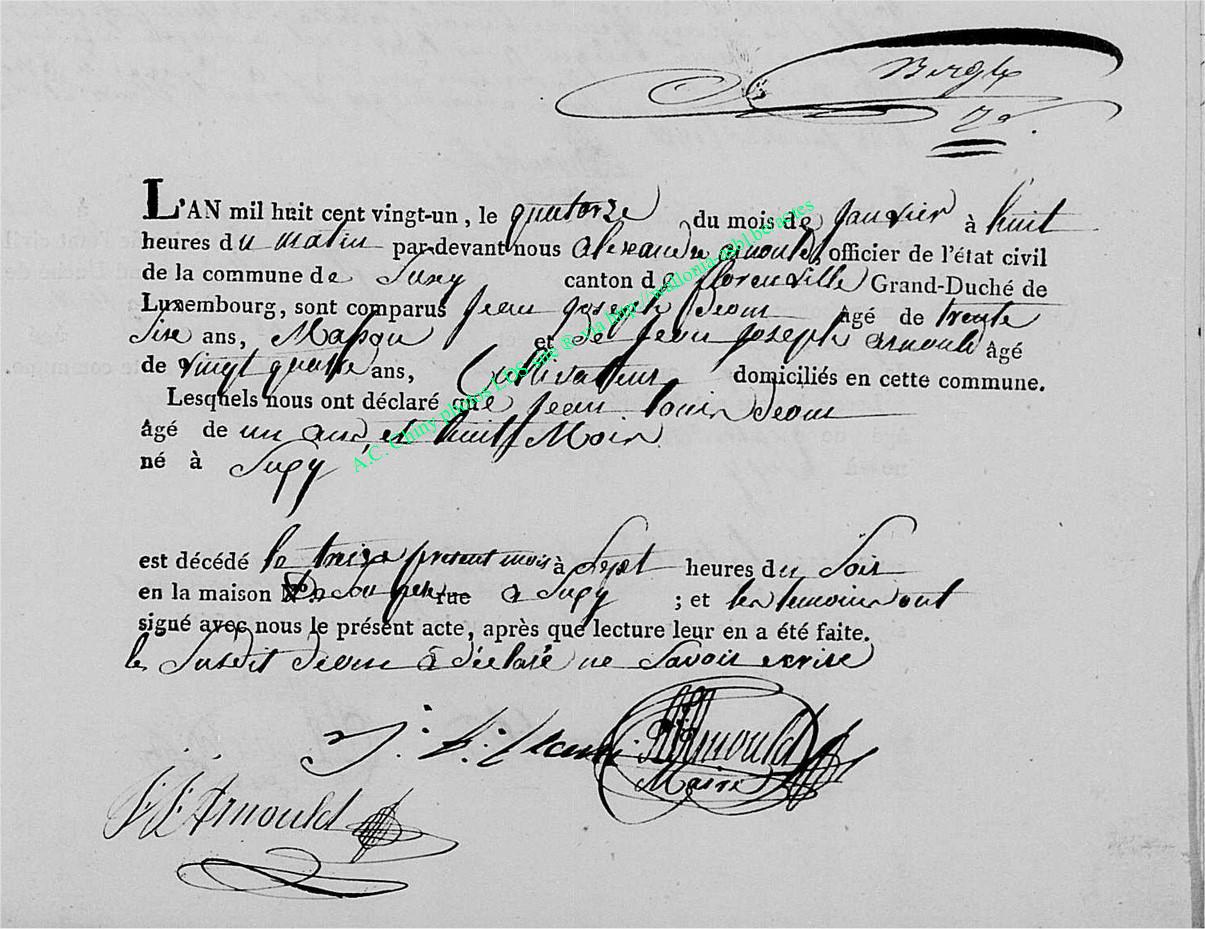 L'AN mil huit cent vingt-un, le quatorze du mois de janvier à huit
heures du matin par-devant nous alexandre arnould, officier de l'état civil
de la commune de Suxy canton de florenville Grand-Duché de
Luxembourg, sont comparus jean joseph Deom âgé de trente
sixe ans, Masson et de jean joseph arnould âgé
de vingt quatre ans, Cultivateur domiciliés en cette commune.
Lesquels nous ont déclaré que jean louis deom
âgé de un ans et huit Mois
né à Suxy
est décédé le treize présent mois à Sept heures du Soir
en la maison N.° rue a Suxy ; et les temoins ont
signé avec nous le présent acte, après que lecture leur en a été faite.
le Susdit deom à déclaré ne Savoir écrire
Arnould
Maire
J J Arnould
A.C. Chiny photos LDS site ® via http://wallonia-asbl.be/actes